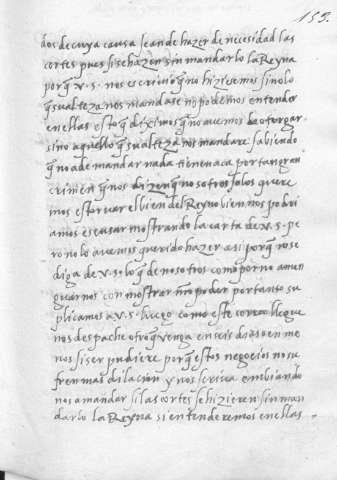 159.
dos de cuya causa sean de hazer de necesidad las
cortes pues si se hazen sin mandarlo la Reyna
porq̃ v. s. nos escrivio q̃ no hiziesemos sino lo
q̃ su alteza nos mandase ni podemos entender
en ellas esto q̃ diximos q̃ no avemos de otorgar
sino aquello q̃ su alteza nos mandare sabiendo
q̃ no a de mandar nada tienen aca por tan gran
crimen q̃ nos dizen q̃ nosotros solos quere
mos estorvar el bien del Reyno bien nos podri
amos escusar mostrando la carta de v. s. pe
ro no lo avemos querido hazer asi porq̃ no se
diga de v. s. lo q̃ de nosotros como por no amen
guarnos con mostrar nr̃o poder por tanto su
plicamos a v. s. luego como este correo llegue
nos despache otro q̃ venga en seis dias o en me
nos si ser pudiere porq̃ estos negocios no su
fren mas dilacion y nos scriva e enbiando
nos a mandar si las cortes se hizieren sin man
darlo la Reyna si entenderemos en ellas